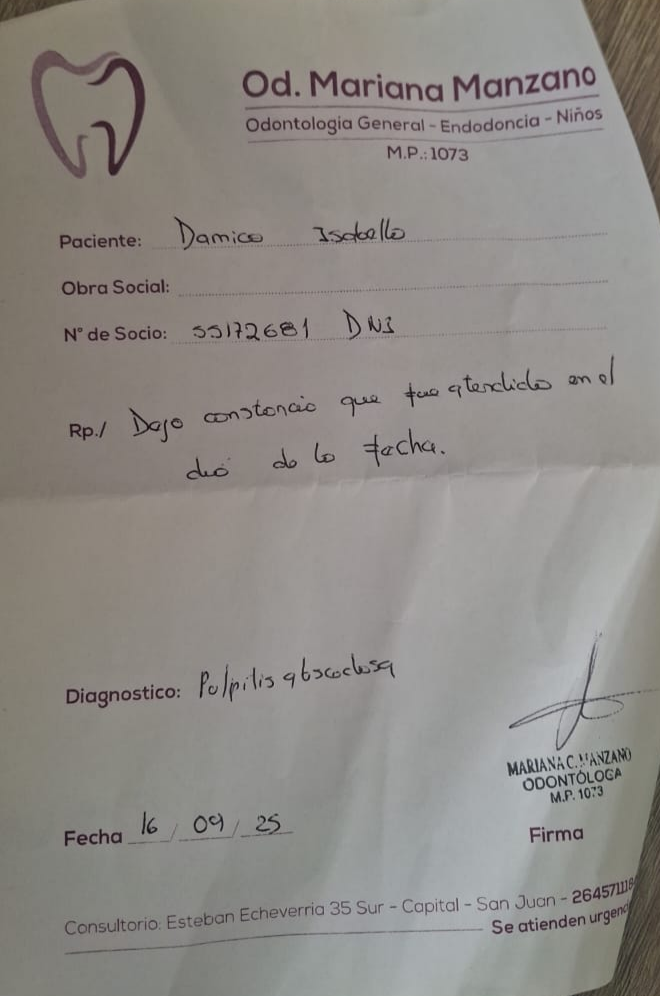 Od. Mariana Manzano
Odontologia General - Endodoncia - Niños
M.P.: 1073
Paciente: Damico Isabella
Obra Social:
N° de Socio: 55172681 DNI
Rp./ Dejo constancia que fue atendida en el
día de la fecha.
Diagnostico: Pulpitis abscedosa
MARIANA C. MANZANO
ODONTÓLOGA
M.P. 1073
Fecha 16 / 09 / 25
Firma
Consultorio: Esteban Echeverria 35 Sur - Capital - San Juan -
Se atienden